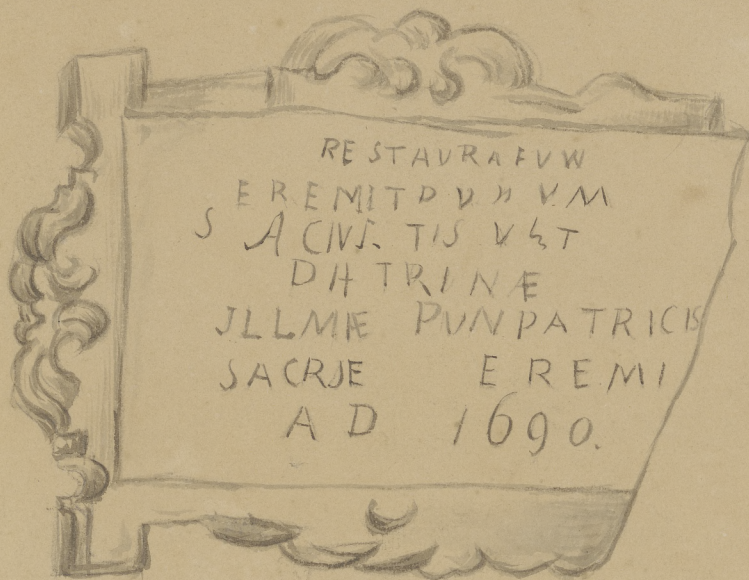 RESTAURAFUW
EREMITDUHVM
S ACIVS. TIS VET
DHTRINÆ
JLLMÆ PVNPATRICIS
SACRÆ EREMI
AD 1690.